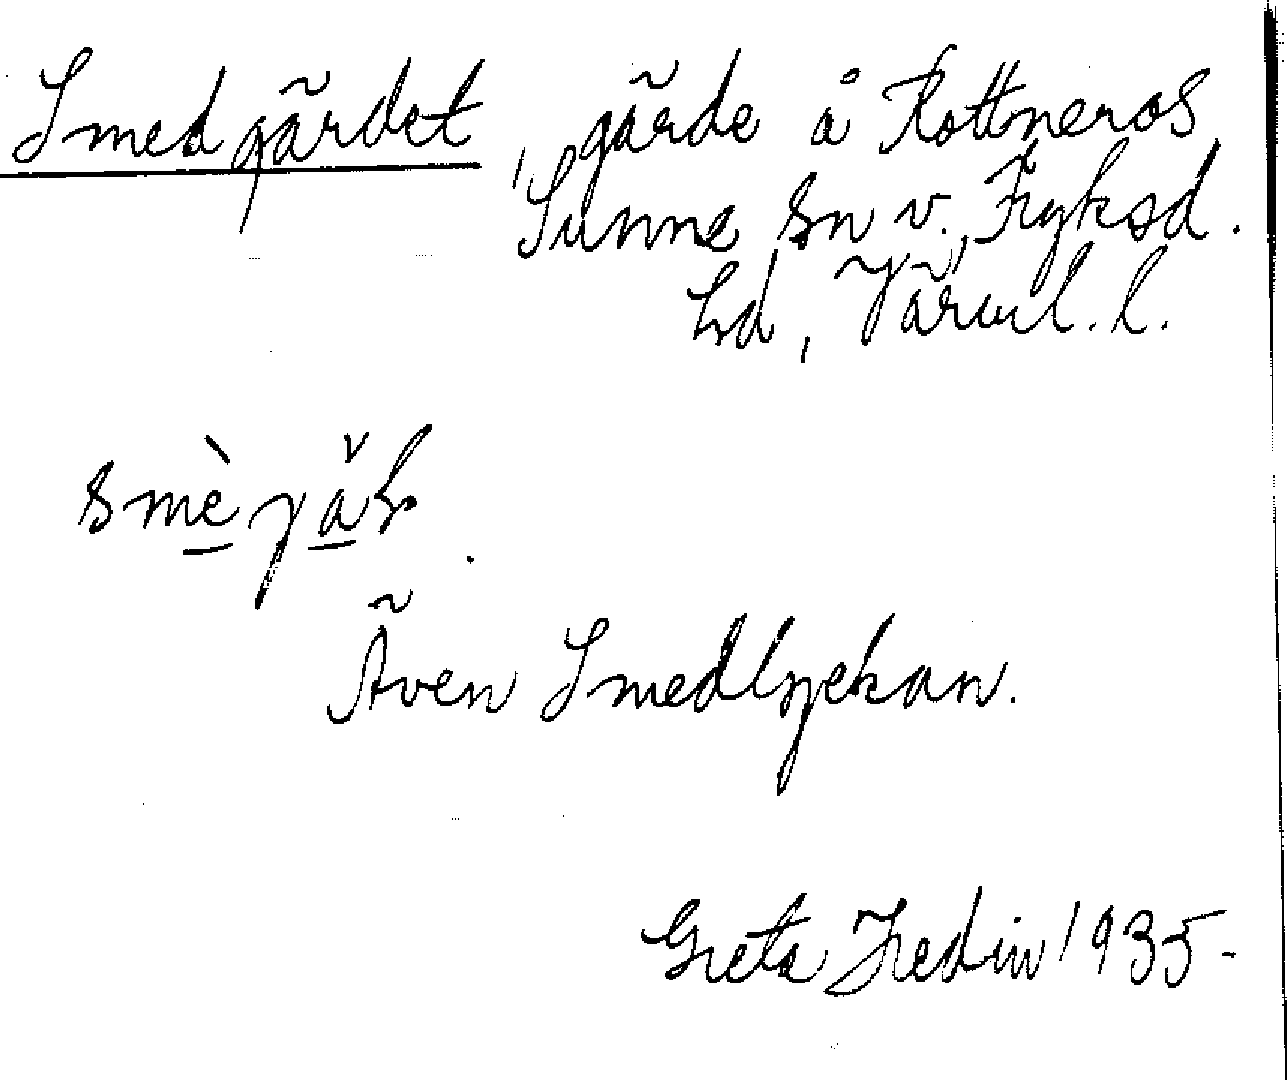 Smedgärdet, gärde å Rottneros,
Sunne sn v., Fryksd.
hd, Värml. l.
smè̱γä̱̆
Även Smedlyckan.
Greta Hedin 1935-